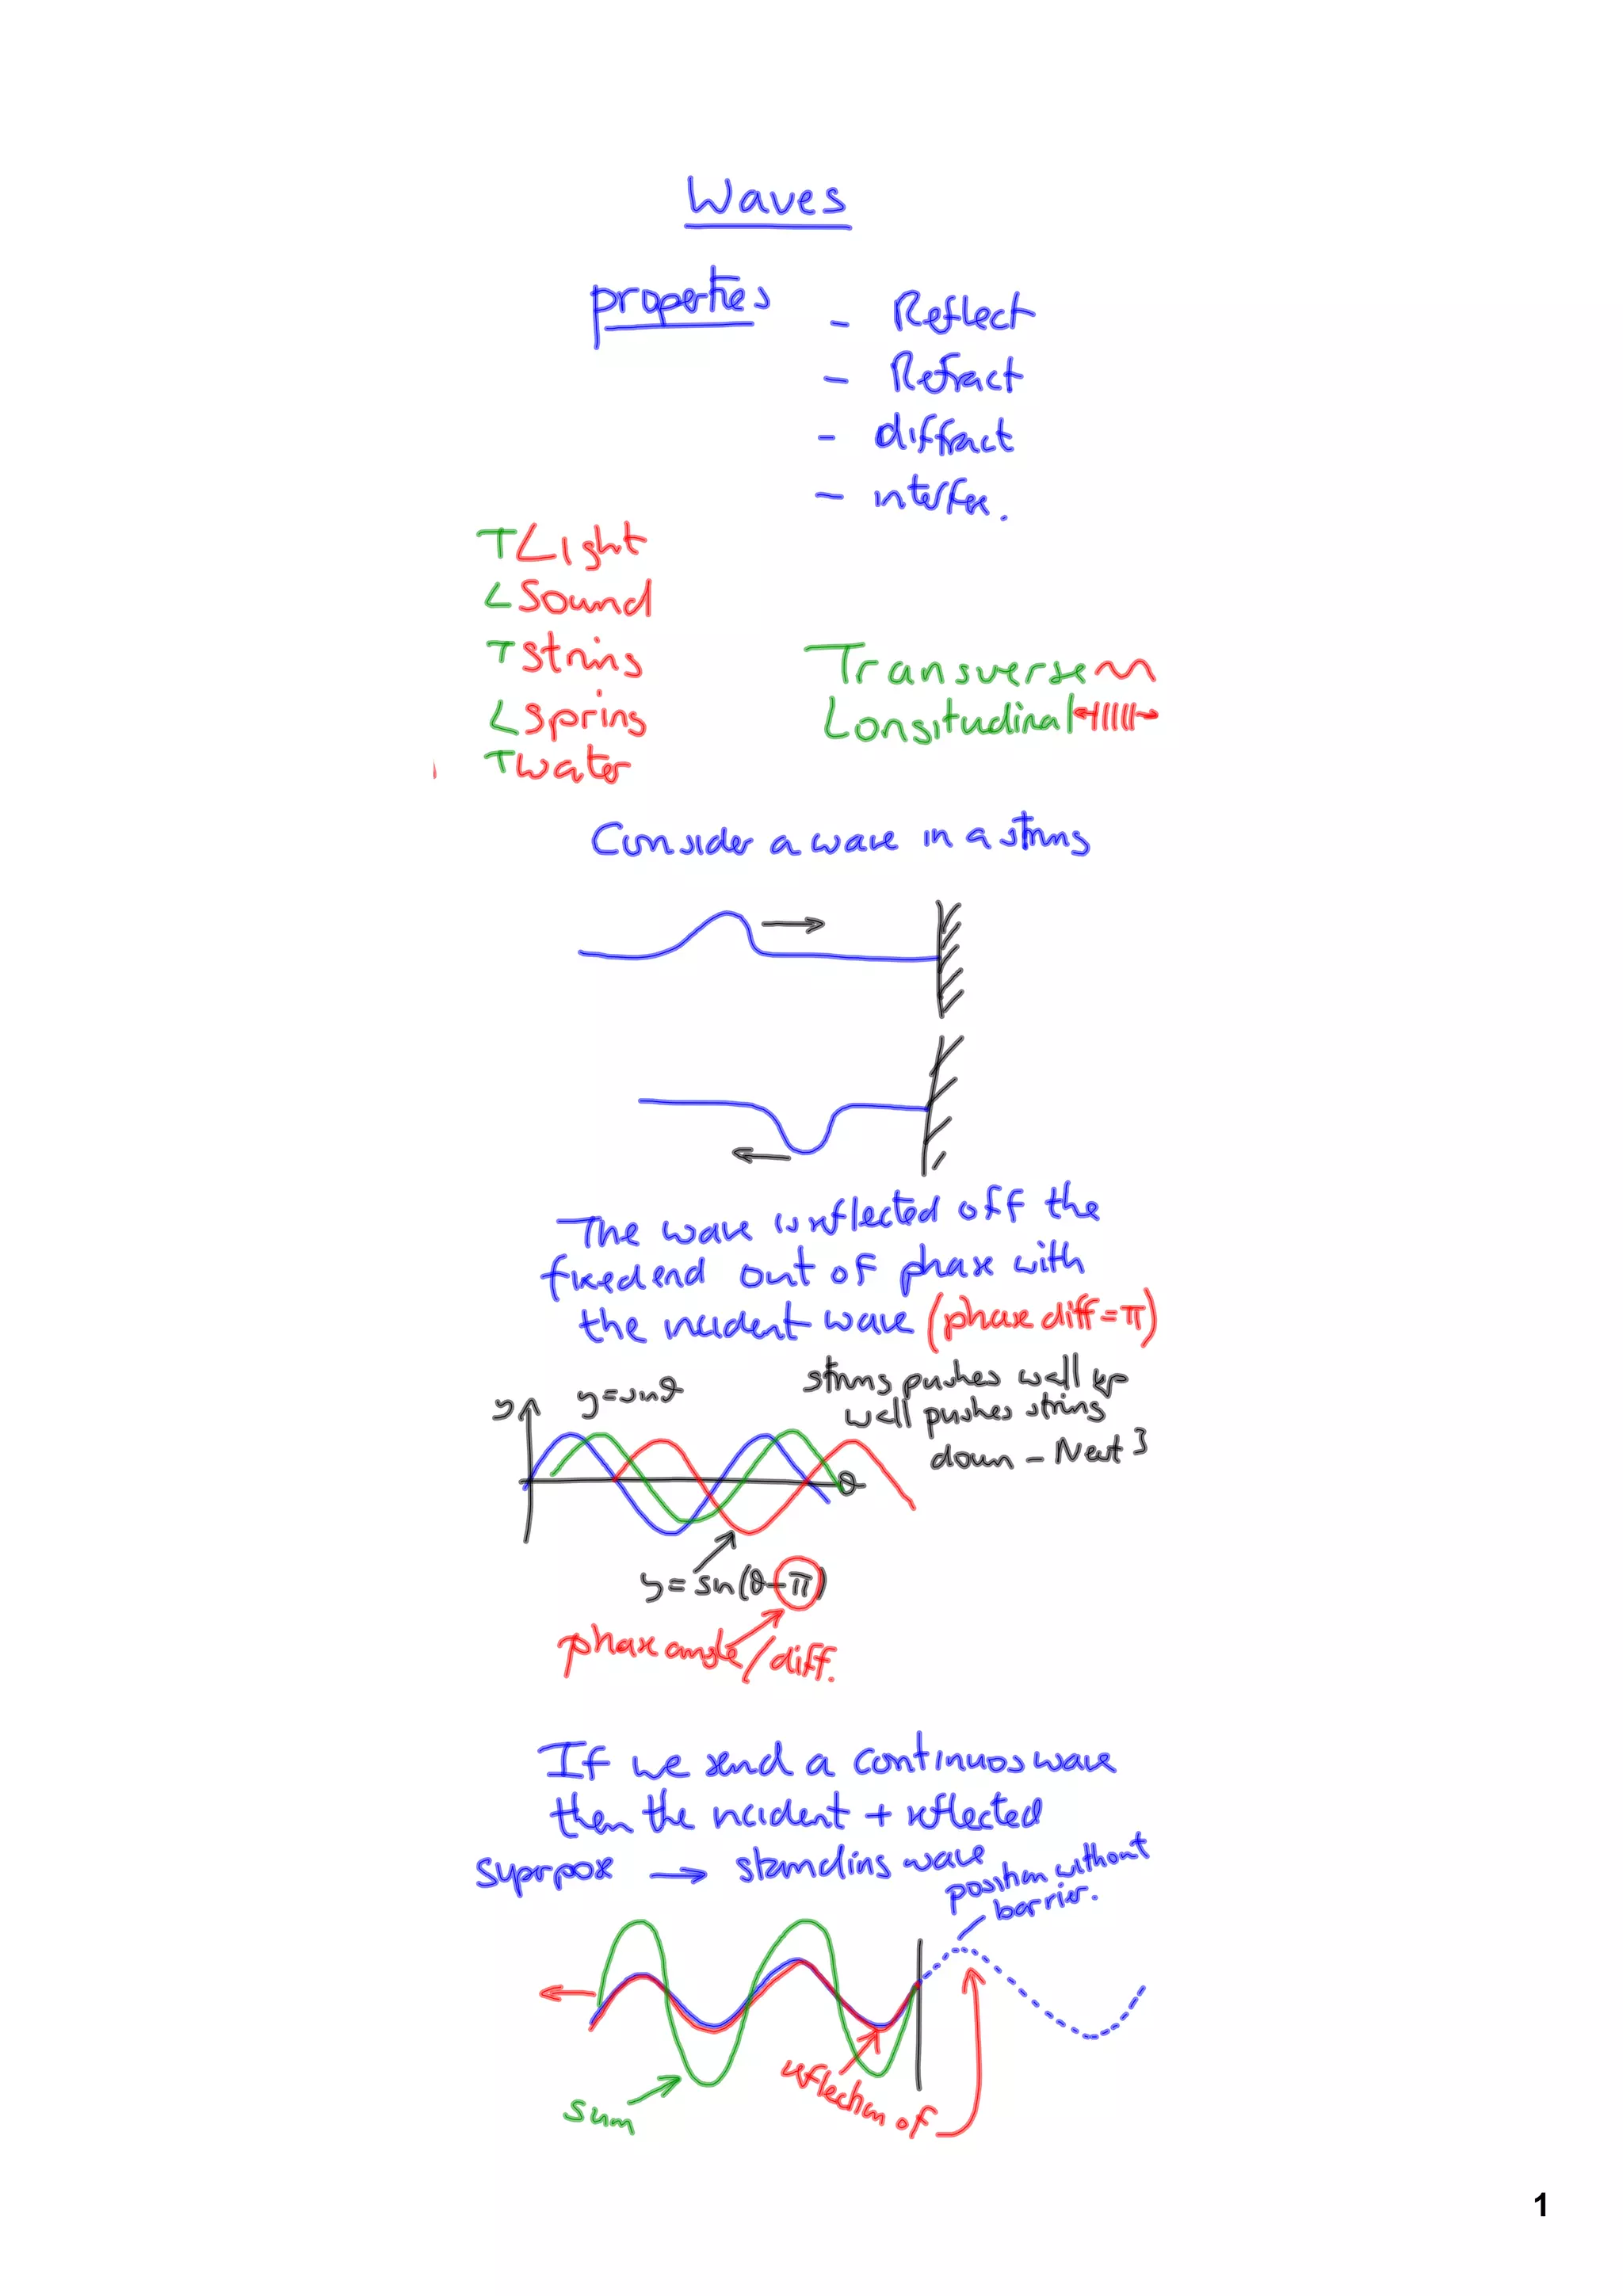 Waves
properties
- Reflect
- Refract
- diffract
- interfere.
T Light
L Sound
T string
L Spring
T water
Transverse
Longitudinal
Consider a wave in a string
The wave is reflected off the
fixed end out of phase with
the incident wave (phase diff = π)
string pushes wall up
wall pushes string
down - Newt 3
y
y = sinθ
θ
y = sin(θ-π)
phase angle/diff.
If we send a continuos wave
then the incident + reflected
superpose → standing wave
position without
barrier.
reflection of
sum
1